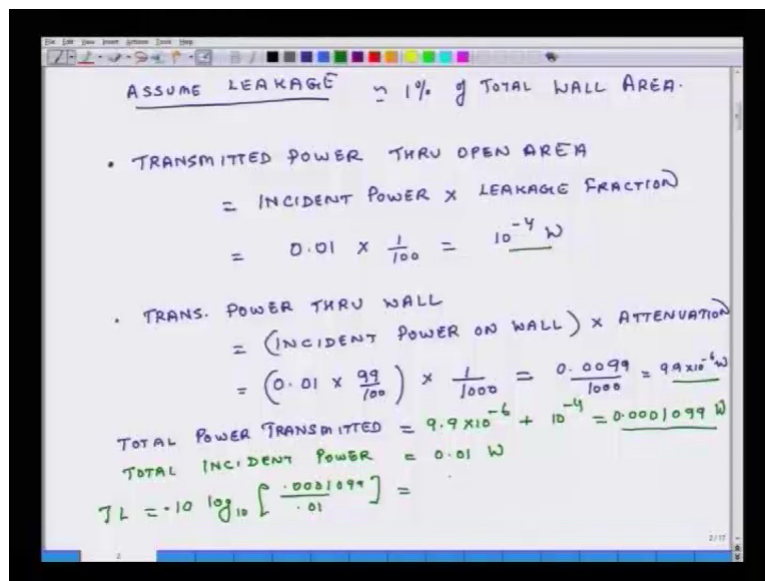 File Edit View Insert Actions Tools Help
ASSUME LEAKAGE ≃ 1% of TOTAL WALL AREA.
• TRANSMITTED POWER THRU OPEN AREA
= INCIDENT POWER X LEAKAGE FRACTION
= 0.01 × 1/100 = 10⁻⁴ W
• TRANS. POWER THRU WALL
= (INCIDENT POWER ON WALL) × ATTENUATION
= (0.01 × 99/100) × 1/1000 = 0.0099/1000 = 9.9×10⁻⁶ W
TOTAL POWER TRANSMITTED = 9.9×10⁻⁶ + 10⁻⁴ = 0.0001099 W
TOTAL INCIDENT POWER = 0.01 W
TL = -10 log₁₀ [.0001099/.01] =
2